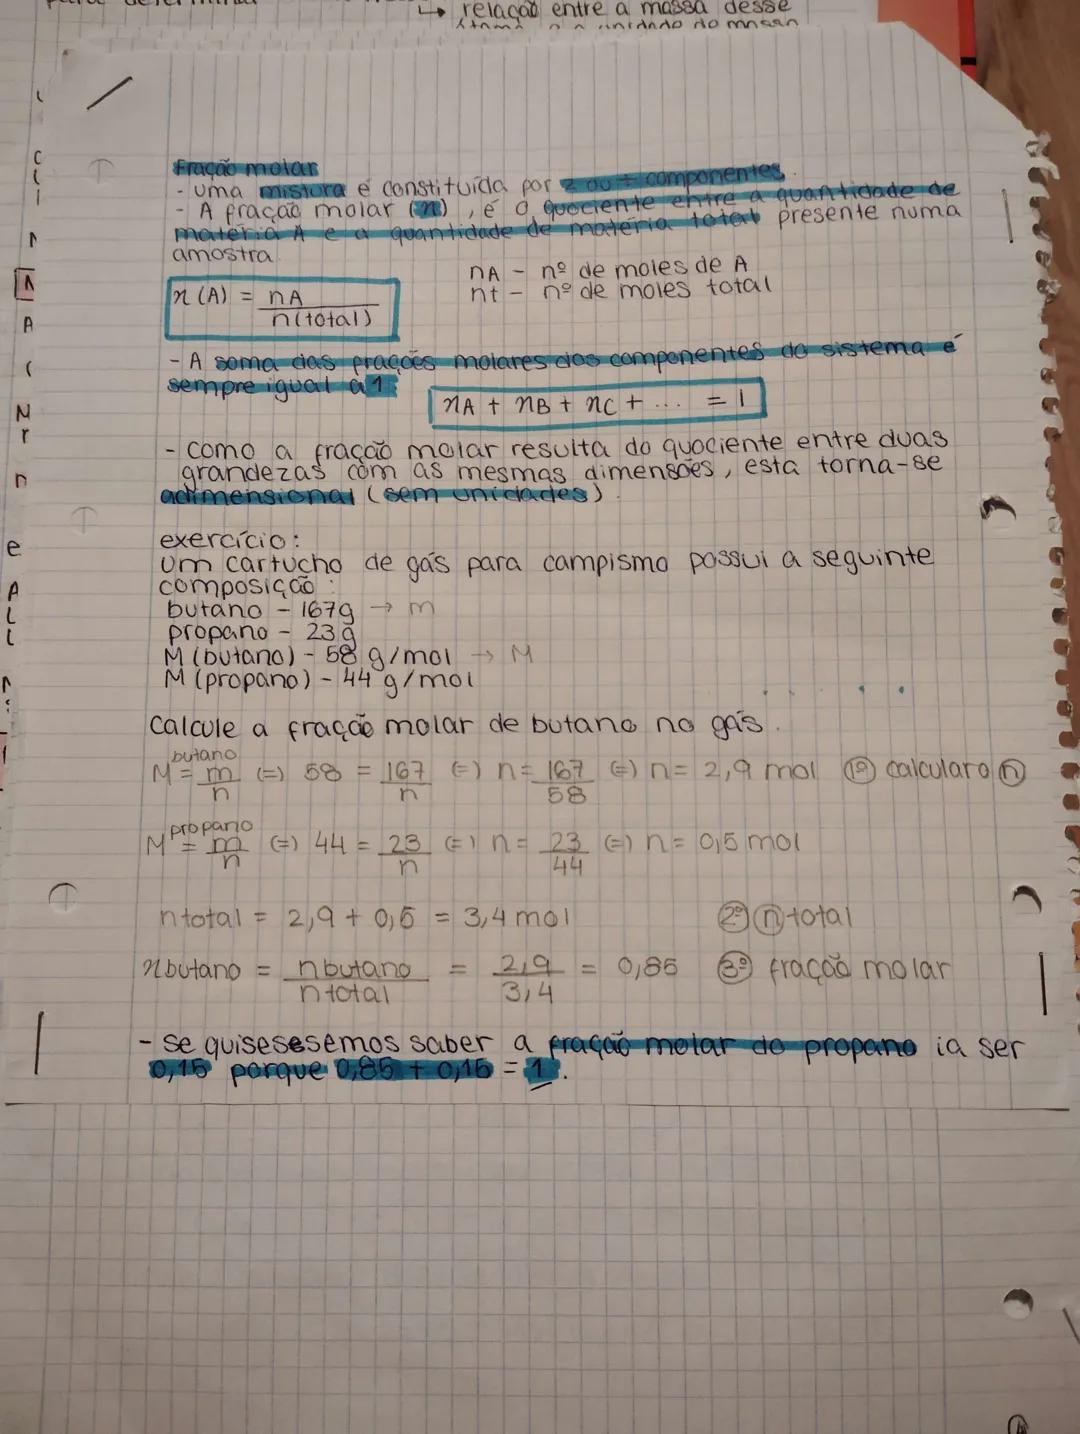 relação entre a massa desse
Fração molar
- uma mistura é constituída por 2 ou + componentes.
- A fração molar (x), é o quociente entre a quantidade de
matéria A e a quantidade de matéria total presente numa
amostra.
x (A) = nA
n(total)
nA - nº de moles de A
nt - nº de moles total
- A soma das frações molares dos componentes do sistema é
sempre igual a 1
xA + xB + xC + ... = 1
- como a fração molar resulta do quociente entre duas
grandezas com as mesmas dimensões, esta torna-se
adimensional (sem unidades).
exercício:
um cartucho de gás para campismo possui a seguinte
composição:
butano - 167g → m
propano - 23g
M (butano) - 58 g/mol → M
M (propano) - 44 g/mol
Calcule a fração molar de butano no gás.
butano
M = m (=) 58 = 167 (=) n = 167 (=) n = 2,9 mol 1º calcular o n
n n 58
propano
M = m (=) 44 = 23 (=) n = 23 (=) n = 0,5 mol
n n 44
n total = 2,9 + 0,5 = 3,4 mol 2º n total
x butano = n butano = 2,9 = 0,85 3º fração molar
n total 3,4
- se quisesesemos saber a fração molar do propano ia ser
0,15 porque 0,85 + 0,15 = 1.